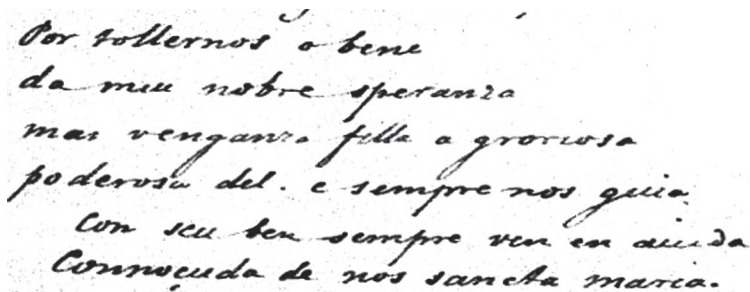 Por tollernos o bene
da muu nobre speranza
mas venganza filla a groriosa
poderosa del. e sempre nos guia
Con seu ben sempre ven en aiuda
Connoçuda de nos sancta maria.